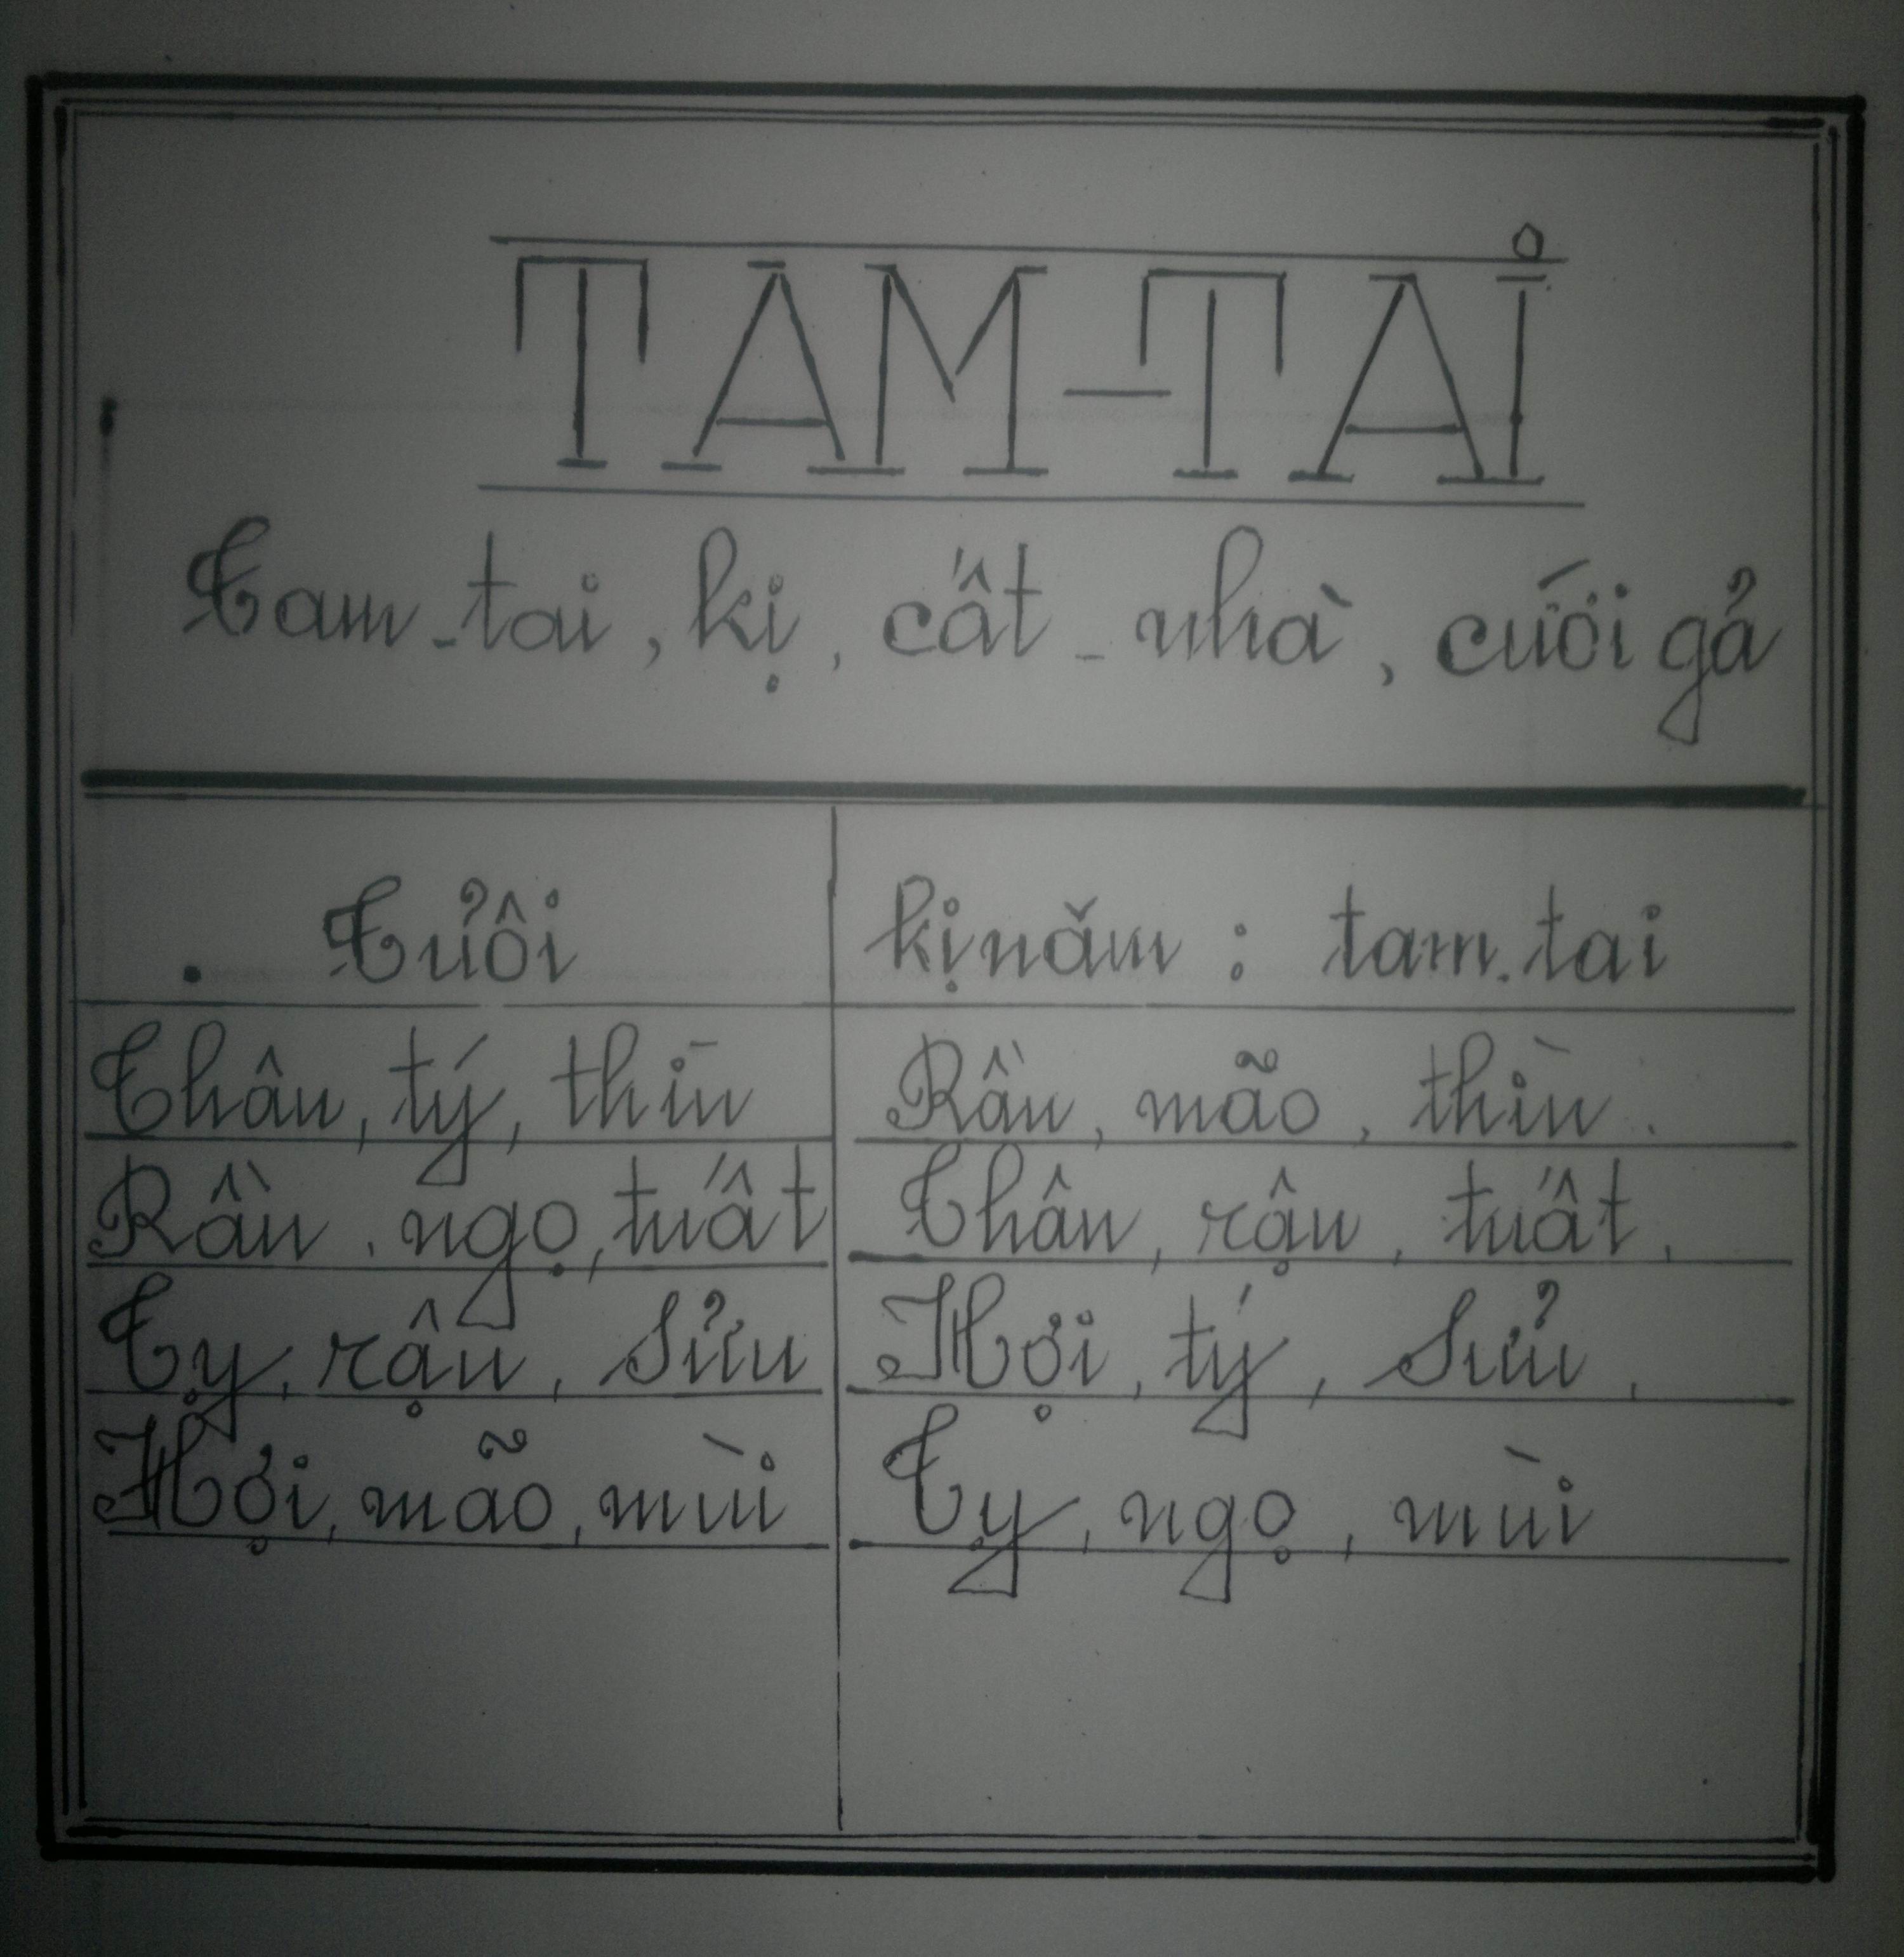 TAM-TAI
Tam-tai, kị, cất-nhà, cưới gả
. Tưổi kị năm : tam.tai
Thân, tý, thìn Rần, mão, thìn.
Rần, ngọ, tuất Thân, rậu, tuất,
Tỵ, rậu, sửu Hợi, tý, sửu,
Hợi, mão, mùi Tỵ, ngọ, mùi